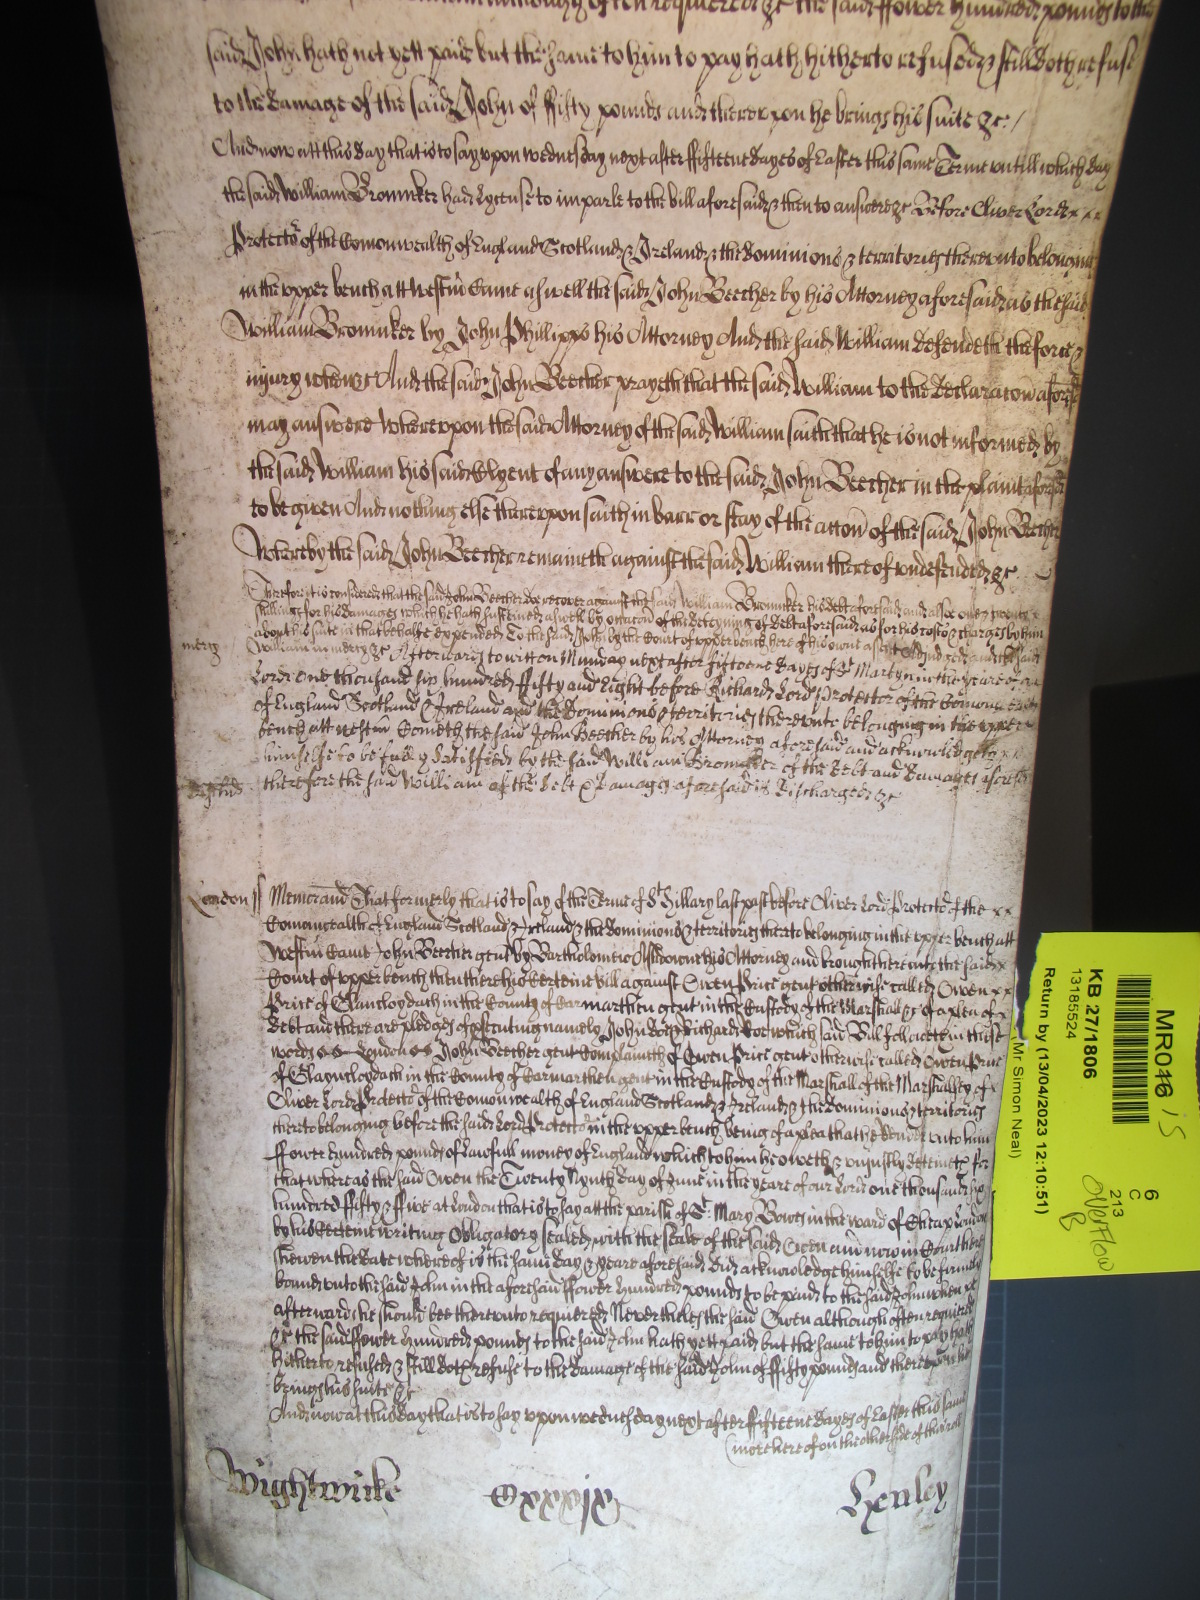 although often required &c the said ffower hundred pounds to the
said John hath not yett paid but the same to him to pay hath hitherto refused & still doth refuse
to the damage of the said John of ffifty pounds and thereupon he brings his suite &c /
And now att this day that is to say upon wednesday next after fifteene dayes of Easter this same Terme untill which day
the said William Brounker had lycense to imparle to the bill aforesaid & then to answere &c Before Oliver Lord x x x
Protector of the Comonwealth of England Scotland & Ireland & the dominions & territories thereunto belonging
in the upper bench att Westm Came aswell the said John Beecher by his Attorney aforesaid as the said
William Brounker by John Phillipps his Attorney And the said William defendeth the force &
injury when &c And the said John Beecher prayeth that the said William to the declaracon aforesd
may answere whereupon the said Attorney of the said William saith that he is not informed by
the said William his said Clyent of any answere to the said John Beecher in the plaint aforesd
to be given And nothing else thereupon saith in barr or stay of the accon of the said John Beecher
Whereby the said John Beecher remaineth against the said William thereof undefended &c
Therefore it is considered that the said John Beecher doe recover against the said William Brounker his debt aforesaid and alsoe
shillings for his damages which he hath susteined aswell by occacon of the deteyning of debt aforesaid as for his costs & charges by him
about his suite in that behalfe expended To the said John by the Court of upper bench here of his owne assent adjudged and the said
mercy William in mercy &c Afterwards to witt on Munday next after fifteene dayes of St Martyn in the yeare of our
Lord one thousand six hundred ffifty and Eight before Richard Lord Protector of the Comonwealth
of England Scotland & Ireland and the Dominions & territories thereunto belonging in the upper
bench att Westm Cometh the said John Beecher by his Attorney aforesaid and acknowledgeth x x
himselfe to be fully satisfied by the said William Brounker of the debt and damages aforesd
therefore the said William of the debt & damages aforesaid is discharged &c
London ss Memorand That formerly that is to say of the Terme of St Hillary last past before Oliver Lord Protector of the x x
Comonwealth of England Scotland & Ireland & the dominions & territories thereto belonging in the upper bench att
Westm Came John Beecher gent by Bartholomew his Attorney and brought here into the said x
Court of upper bench then there his Certeine bill against Owen Price gent otherwise called Owen x x
Price of in the County of Carmarthen gent in the Custody of the Marshall &c of a plea of x
debt and there are pledges of psecuting namely John Doe & Richard Roe which said Bill followeth in these
words ss London ss John Beecher gent Complaineth of Owen Price gent otherwise called Owen Price
of in the County of Carmarthen gent in the Custody of the Marshall of the Marshallsey of x
Oliver Lord Protector of the Comonwealth of England Scotland & Ireland & the dominions & territories
thereto belonging before the said Lord Protector in the upper bench being of a plea that he Render unto him
ffower hundred pounds of lawfull money of England which to him he oweth & unjustly deteineth for
that whereas the said Owen the Twenty Nynth day of June in the yeare of our Lord one thousand six
hundred ffifty & ffive at London that is to say att the parish of St Mary Bowe in the ward of Cheap London
by his Certeine writing Obligatory sealed with the seale of the said Owen and now in Court here
shewen the date whereof is the same day & yeare aforesaid did acknowledge himselfe to be firmely
bound unto the said John in the aforesaid ffower hundred pounds to be paid to the said John when x
afterwards he should bee thereunto required Neverthelesse the said Owen although often required
&c the said ffower hundred pounds to the said John hath yett paid but the same to him to pay hath
hitherto refused & still doth refuse to the damage of the said John of ffifty pounds and thereupon he
brings his suite &c
And now at this day that is to say upon wednesday next after fifteene dayes of Easter this same
(more hereof on the other side of this roll
Wightwicke Cxxxix Henley
MR016
15
KB 27/1806
13185524
Return by (13/04/2023 12:10:51)
Mr Simon Neal)
6
C
213
Overflow
B